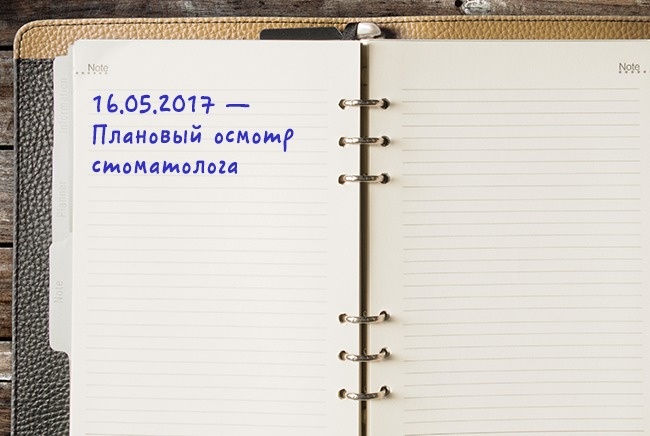 Note
Note
16.05.2017 —
Плановый осмотр
стоматолога
Information
Planner
Note